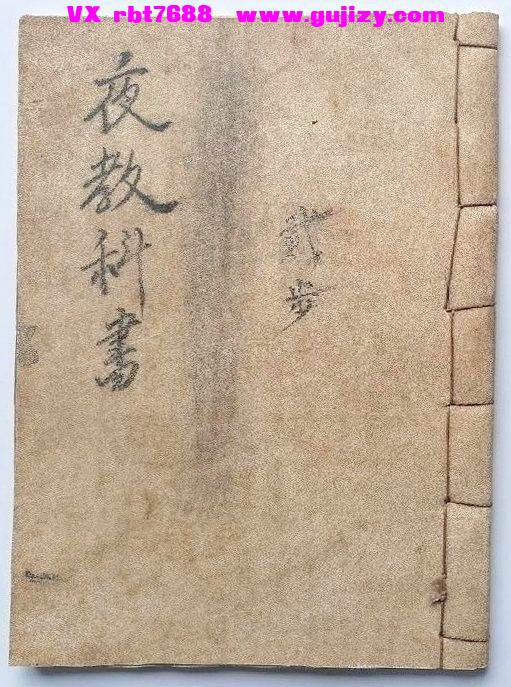 VX rbt7688 www.gujizy.com
夜教科書